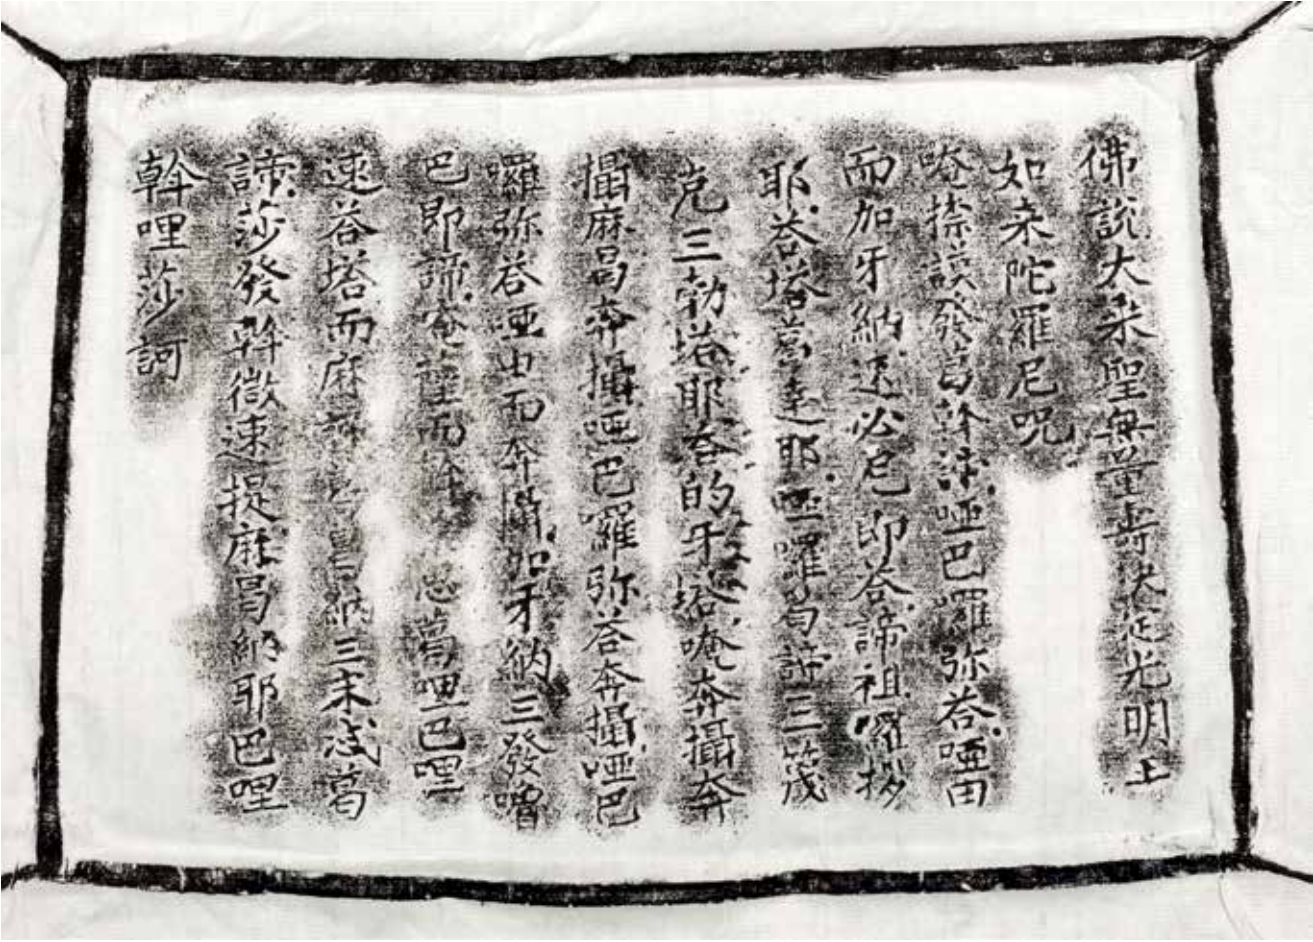 佛說大乘聖無量壽決定光明王
如來陀羅尼呪
唵捺謨發葛斡諦啞巴囉弥荅啞由
而加牙納速必尼即荅諦祖囉拶
耶荅塔葛達耶啞囉曷諦三篾
克三勃塔耶荅的牙塔唵奔攝奔
攝麻曷奔攝啞巴囉弥荅奔攝啞巴
囉弥荅啞由而奔攝加牙納三發嚕
巴即諦唵薩而斡忽葛哩巴哩
速荅塔而麻納三末忒葛
諦莎發斡微速提麻曷納耶巴哩
斡哩莎訶